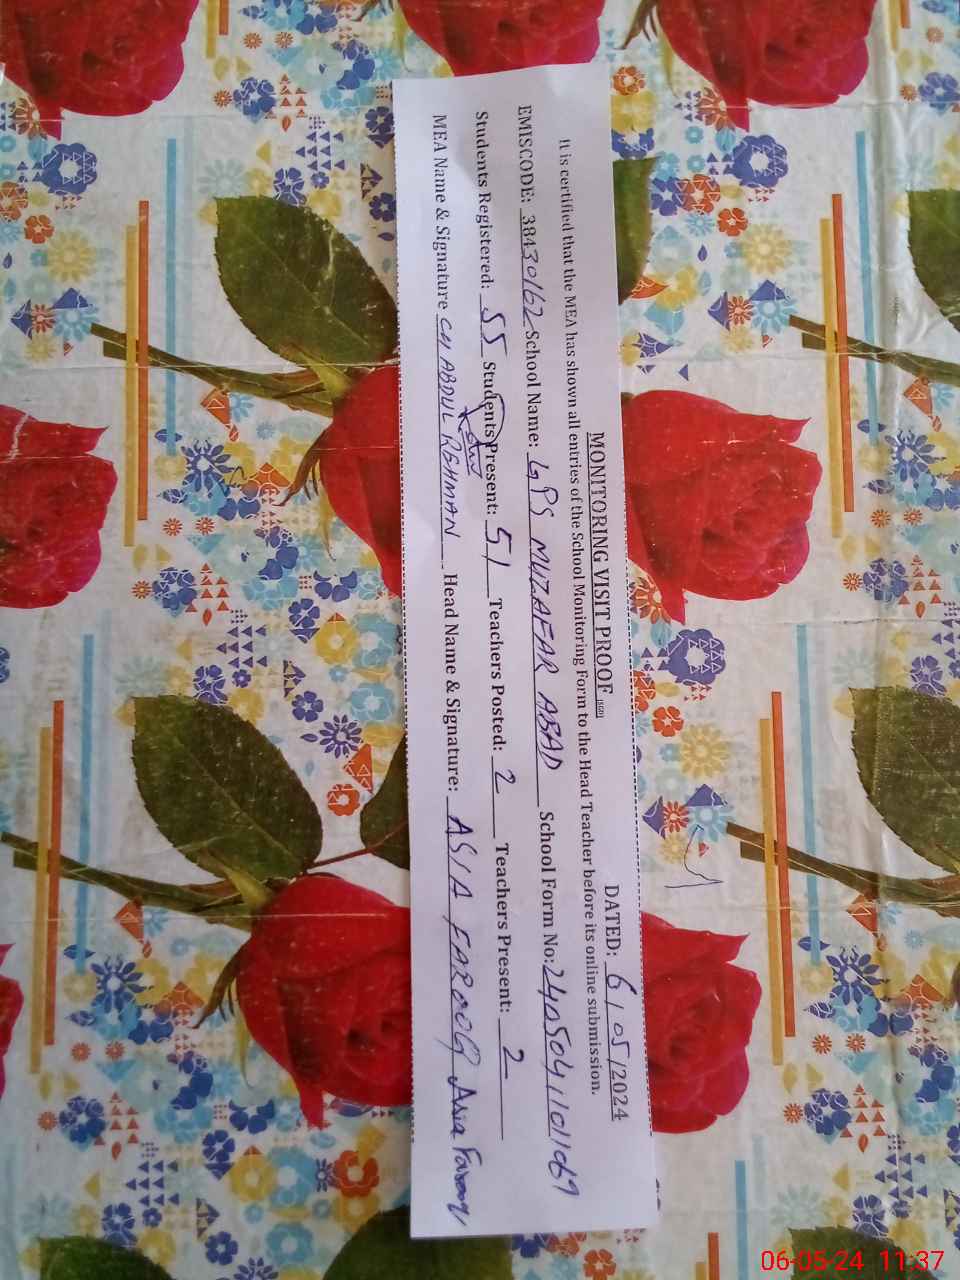 MONITORING VISIT PROOF (SGD)
DATED: 6/05/2024
It is certified that the MEA has shown all entries of the School Monitoring Form to the Head Teacher before its online submission.
EMISCODE: 38430162 School Name: GPS MUZAFAR ABAD School Form No: 2405041101069
Students Registered: 55 Students Present: 51 Teachers Posted: 2 Teachers Present: 2
MEA Name & Signature CH ABDUL REHMAN Head Name & Signature: ASIA FAROOQ Asia Farooq
06-05-24 11:37